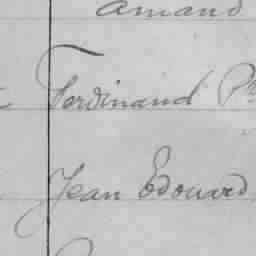 Amand
Ferdinand Pre
Jean Edouard